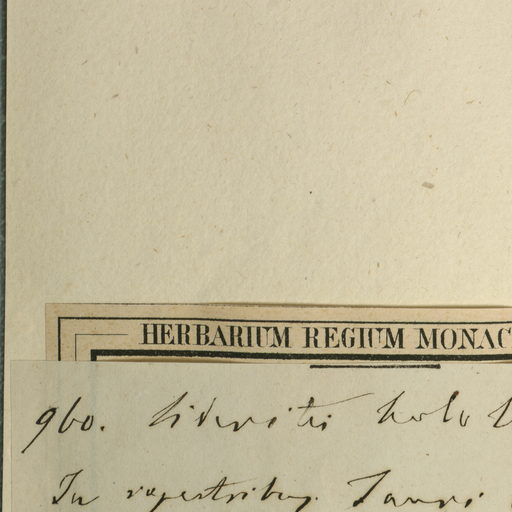 HERBARIUM REGIUM MONAC
960. Sideritis
In rupestribus Tauri